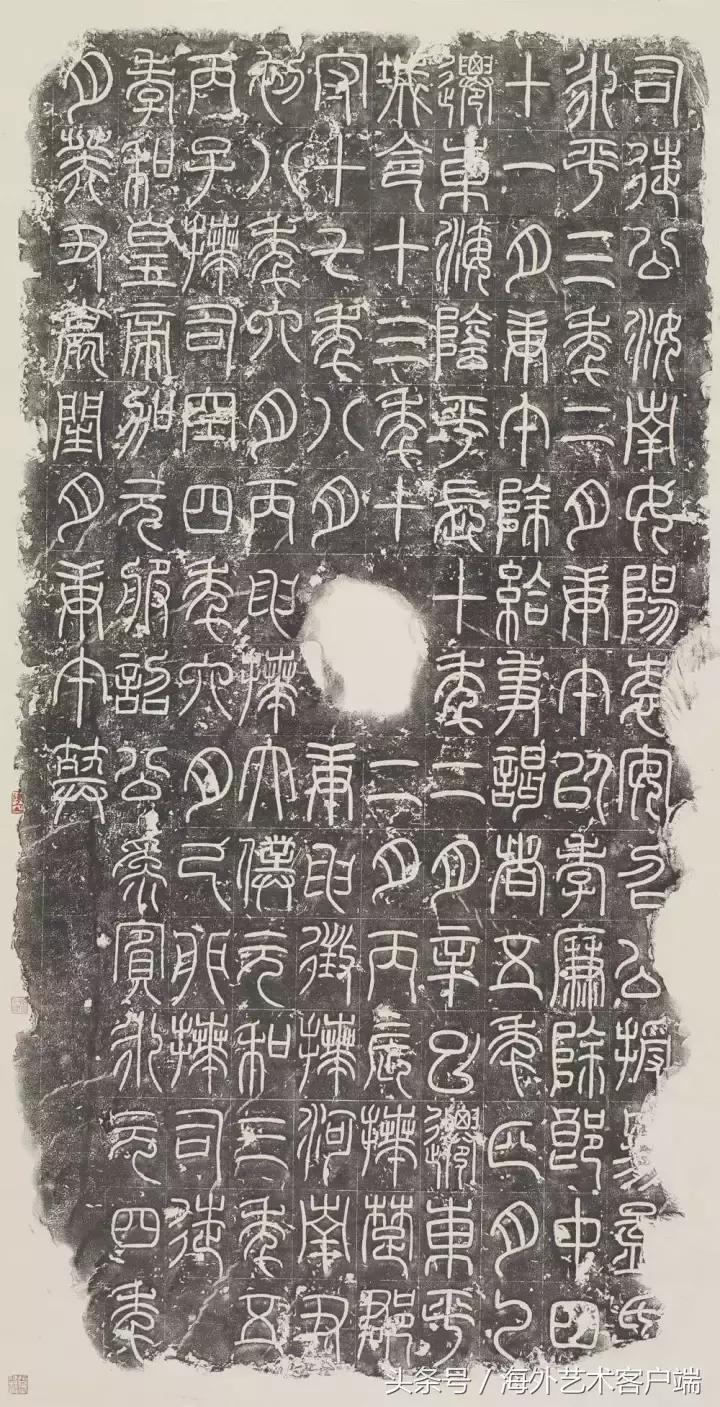 司徒公汝南女陽袁安召公授易孟氏
永平三年二月庚午以孝廉除郎中四
十一月庚午除給事謁者五年正月乙
遷東海陰平長十年二月辛巳遷東平
城令十三年十二月丙辰拜楚郡
守十七年八月庚申徵拜河南尹
初八年六月丙申拜太僕元和三年五
丙子拜司空四年六月己卯拜司徒
孝和皇帝加元服詔公為賓永元四年
月癸丑薨閏月庚午葬
头条号 / 海外艺术客户端